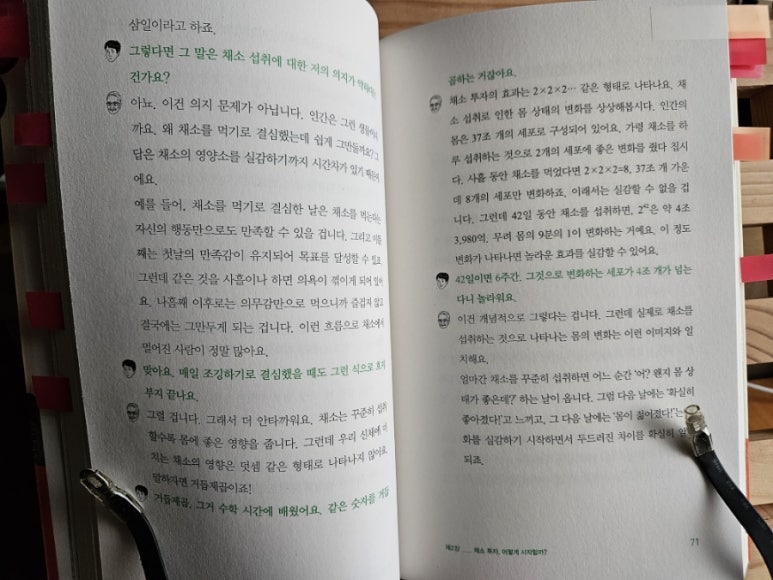 삼일이라고 하죠.
그렇다면 그 말은 채소 섭취에 대한 저의 의지가 약하다는
건가요?
아뇨. 이건 의지 문제가 아닙니다. 인간은 그런 생물이니
까요. 왜 채소를 먹기로 결심했는데 쉽게 그만둘까요? 그
답은 채소의 영양소를 실감하기까지 시간차가 있기 때문이
에요.
예를 들어, 채소를 먹기로 결심한 날은 채소를 먹는다는
자신의 행동만으로도 만족할 수 있을 겁니다. 그리고 이틀
째는 첫날의 만족감이 유지되어 목표를 달성할 수 있죠.
그런데 같은 것을 사흘이나 하면 의욕이 꺾이게 되어 있어
요. 나흘째 이후로는 의무감만으로 먹으니까 즐겁지 않고
결국에는 그만두게 되는 겁니다. 이런 흐름으로 채소에서
멀어진 사람이 정말 많아요.
맞아요. 매일 조깅하기로 결심했을 때도 그런 식으로 흐지
부지 끝나요.
그럴 겁니다. 그래서 더 안타까워요. 채소는 꾸준히 섭취
할수록 몸에 좋은 영향을 줍니다. 그런데 우리 신체에 미
치는 채소의 영향은 덧셈 같은 형태로 나타나지 않아요.
말하자면 거듭제곱이죠!
거듭제곱, 그거 수학 시간에 배웠어요. 같은 숫자를 거듭
곱하는 거잖아요.
채소 투자의 효과는 2×2×2… 같은 형태로 나타나요. 채
소 섭취로 인한 몸 상태의 변화를 상상해봅시다. 인간의
몸은 37조 개의 세포로 구성되어 있어요. 가령 채소를 하
루 섭취하는 것으로 2개의 세포에 좋은 변화를 줬다 칩시
다. 사흘 동안 채소를 먹었다면 2×2×2=8, 37조 개 가운
데 8개의 세포만 변화하죠. 이래서는 실감할 수 없을 겁
니다. 그런데 42일 동안 채소를 섭취하면, 2⁴²은 약 4조
3,980억. 무려 몸의 9분의 1이 변화하는 거예요. 이 정도
변화가 나타나면 놀라운 효과를 실감할 수 있어요.
42일이면 6주간. 그것으로 변화하는 세포가 4조 개가 넘는
다니 놀라워요.
이건 개념적으로 그렇다는 겁니다. 그런데 실제로 채소를
섭취하는 것으로 나타나는 몸의 변화는 이런 이미지와 일
치해요.
얼마간 채소를 꾸준히 섭취하면 어느 순간 '어? 왠지 몸 상
태가 좋은데?' 하는 날이 옵니다. 그럼 다음 날에는 '확실히
좋아졌다!'고 느끼고, 그 다음 날에는 '몸이 젊어졌다!'는
화를 실감하기 시작하면서 두드러진 차이를 확실히
되죠.
제2장 ___ 채소 투자, 어떻게 시작할까?
71